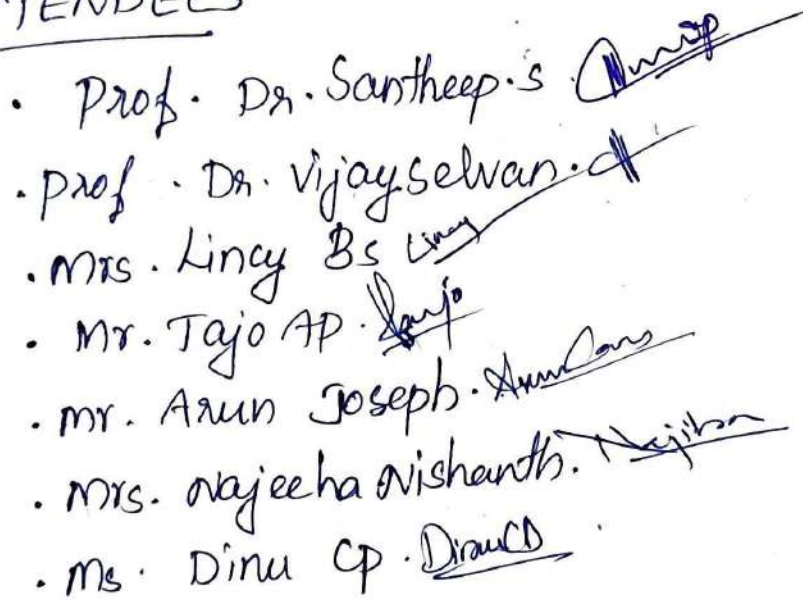 TENDEES
• Prof. Dr. Santheep.S
• Prof. Dr. Vijayselvan.
• Mrs. Lincy BS Lincy
• Mr. Tajo AP.
• Mr. Arun Joseph.
• Mrs. Najeeha Nishanth.
• Ms. Dinu CP.